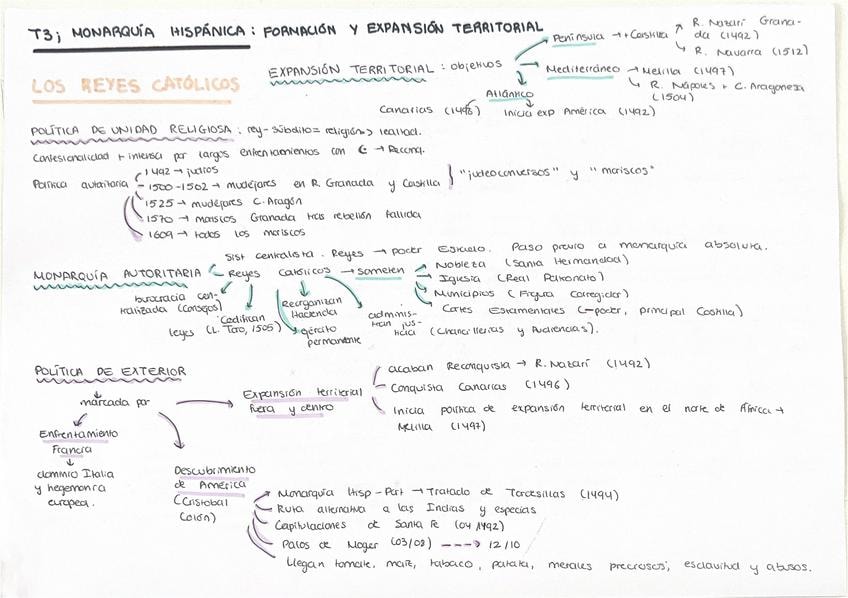 T3; MONARQUÍA HISPÁNICA: FORMACIÓN Y EXPANSIÓN TERRITORIAL
LOS REYES CATÓLICOS
EXPANSIÓN TERRITORIAL: objetivos
Península → + Castilla
R. Nazarí Grana-
da (1492)
R. Navarra (1512)
Mediterráneo → Melilla (1497)
R. Nápoles + C. Aragonesa
(1504)
Atlántico
Canarias (1496)
Inicia exp América (1492)
POLÍTICA DE UNIDAD RELIGIOSA: rey-súbdito = religión => lealtad.
Confesionalidad + intensa por largos enfrentamientos con → Reconq.
Política autoritaria
1492 → judíos
1500-1502 → mudéjares en R. Granada y Castilla
"judeoconversos" y "moriscos"
1525 → mudéjares C. Aragón
1570 → moriscos Granada tras rebelión fallida
1609 → todos los moriscos
MONARQUÍA AUTORITARIA
Sist centralista. Reyes → poder Estado. Paso previo a monarquía absoluta.
Reyes Católicos → someten
Nobleza (Santa Hermandad)
Iglesia (Real Patronato)
Municipios (Figura Corregidor)
Cortes Estamentales (-poder, principal Castilla)
burocracia cen-
tralizada (Consejos)
Codifican
leyes (L. Toro, 1505)
Reorganizan
Hacienda
ejército
permanente
adminis-
tran jus-
ticia (Chancillerías y Audiencias).
POLÍTICA DE EXTERIOR
marcada por
Enfrentamiento
Francia
dominio Italia
y hegemonía
europea.
Expansión territorial
fuera y dentro
acaban Reconquista → R. Nazarí (1492)
Conquista Canarias (1496)
Inicia política de expansión territorial en el norte de África →
Melilla (1497)
Descubrimiento
de América
(Cristobal
Colón)
Monarquía Hisp-Port → Tratado de Tordesillas (1494)
Ruta alternativa a las Indias y especias
Capitulaciones de Santa Fe (04/1492)
Palos de Moger (03/08) ---> 12/10
Llegan tomate, maíz, tabaco, patata, metales preciosos; esclavitud y abusos.